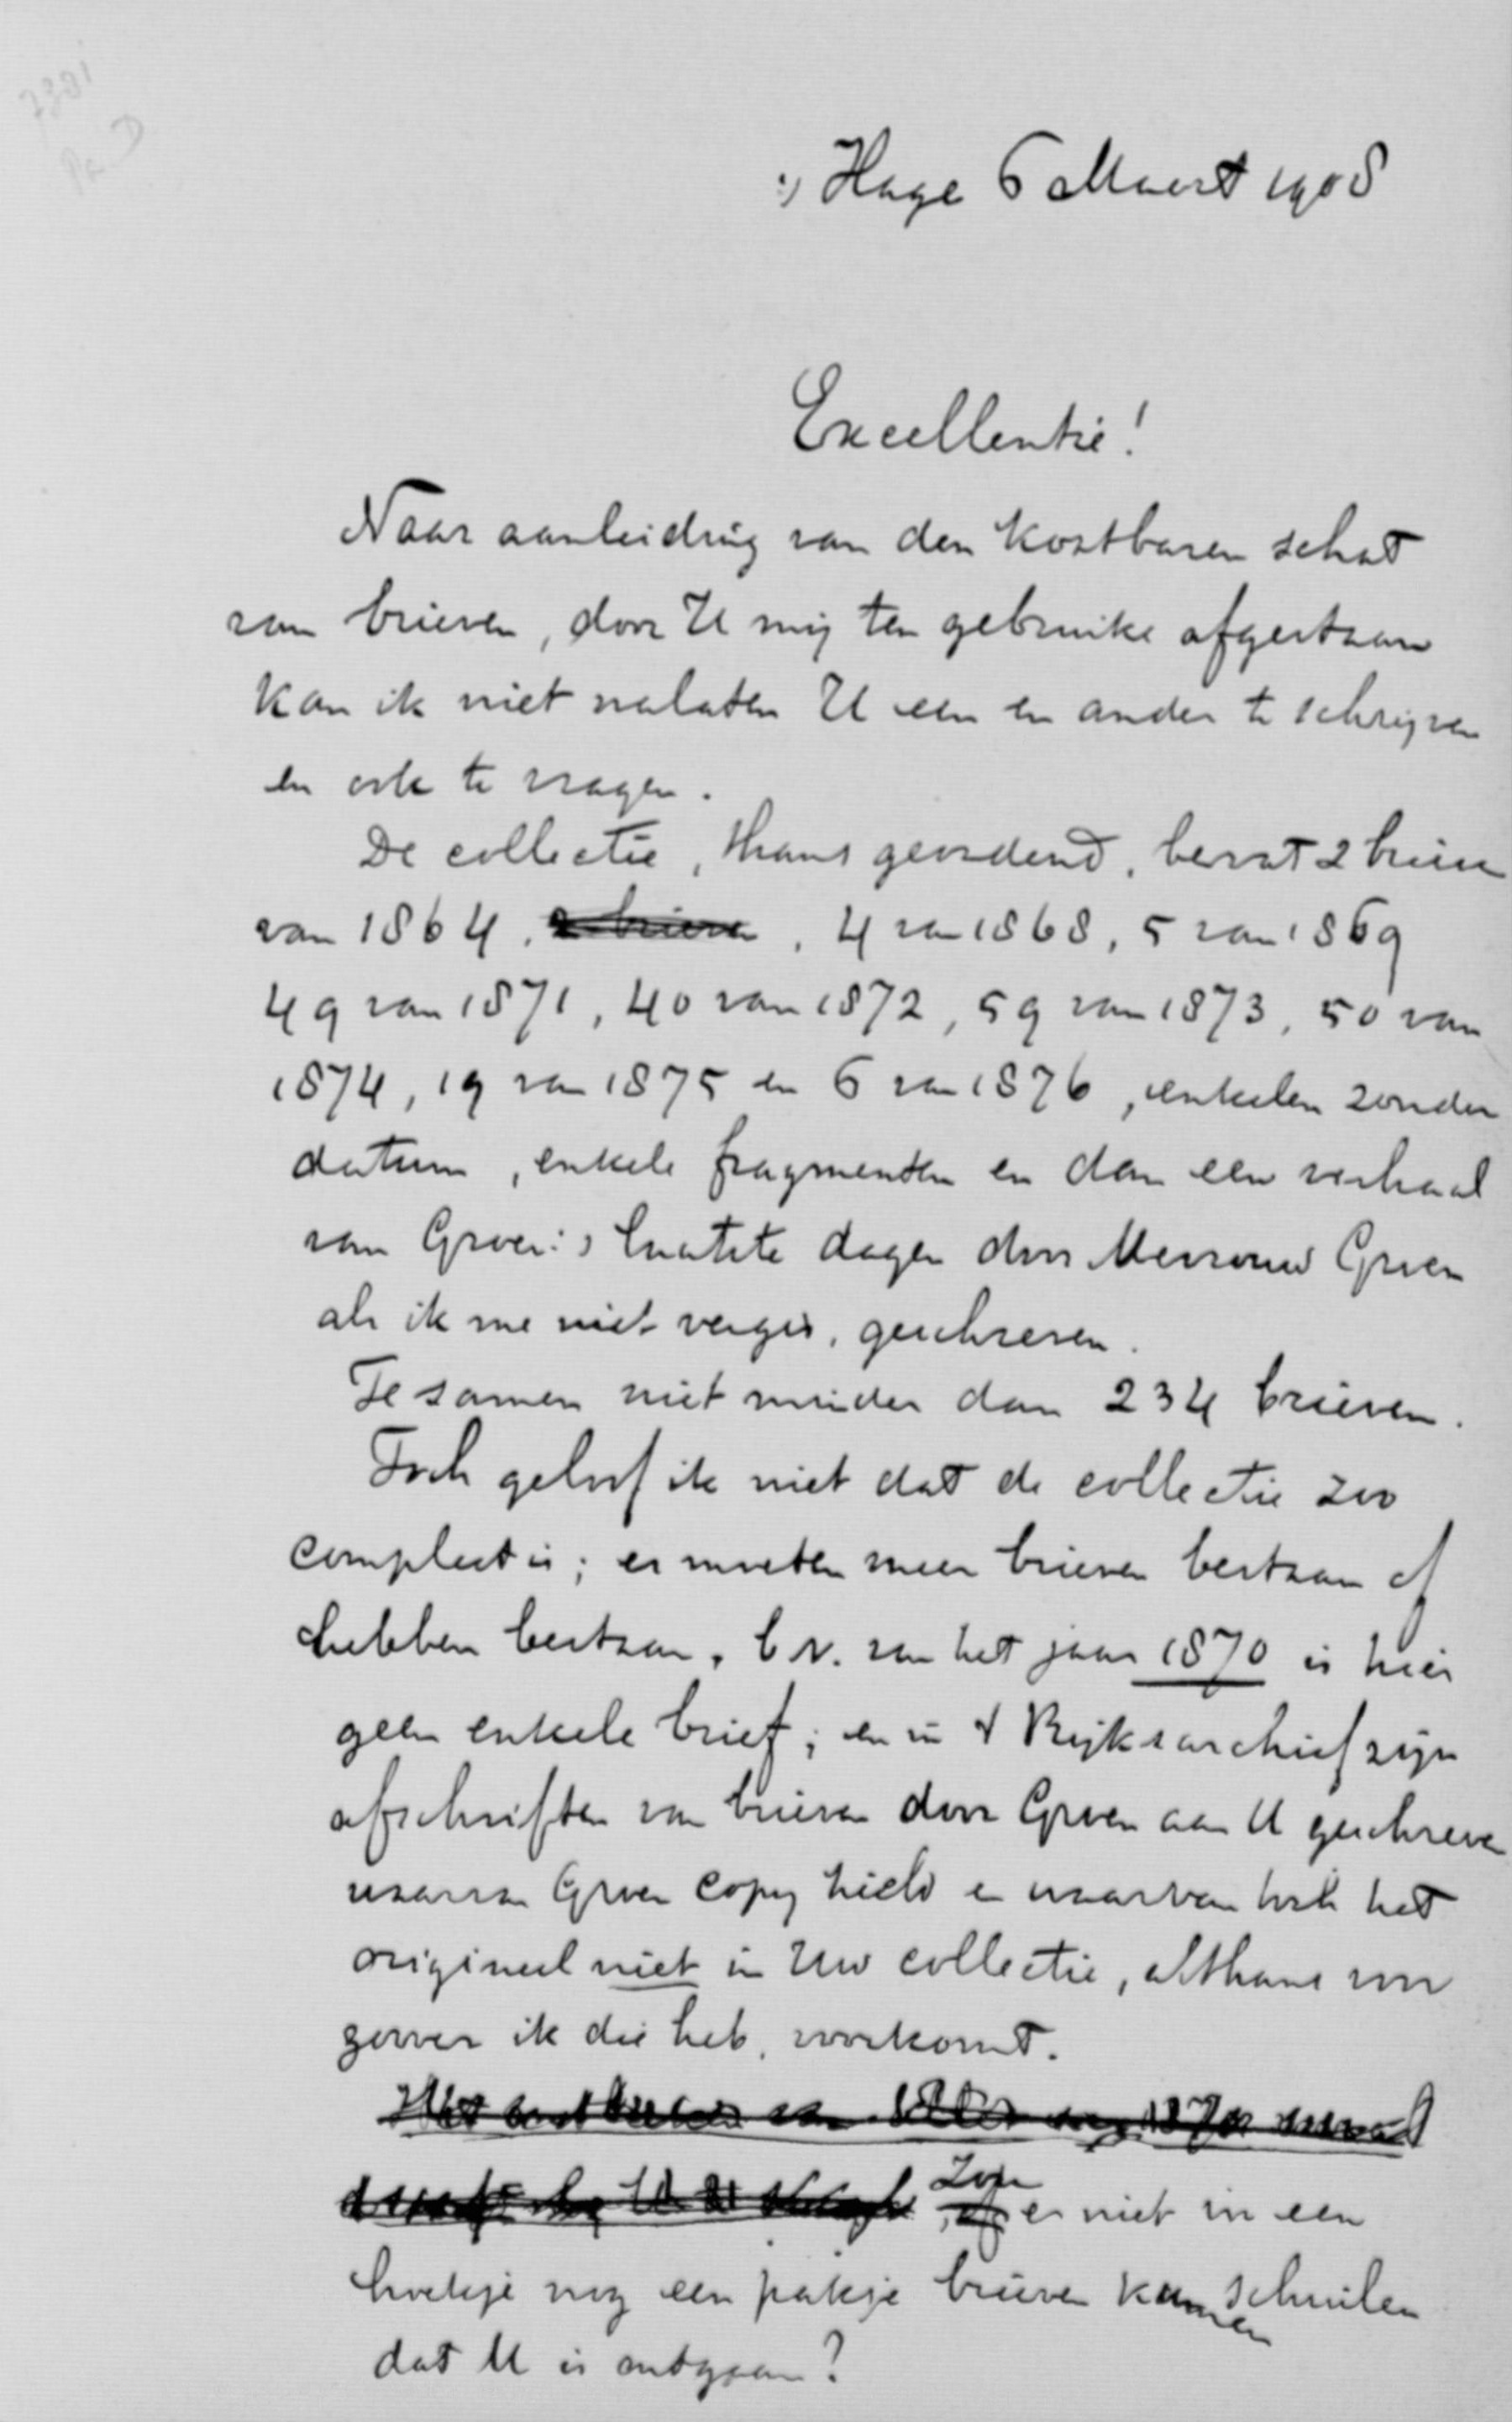 7381
Pa D
's Hage 6 Maart 1908
Excellentie!
Naar aanleiding van den kostbaren schat
van brieven, door U mij ten gebruike afgestaan
kan ik niet nalaten U een en ander te schrijven
en ook te vragen.
De collectie, thans geordend, bevat 2 brieven
van 1864, 2 brieven, 4 van 1868, 5 van 1869
49 van 1871, 40 van 1872, 59 van 1873, 50 van
1874, 19 van 1875 en 6 van 1876, enkelen zonder
datum, enkele fragmenten en dan een verhaal
van Groen's laatste dagen door Mevrouw Groen
als ik me niet vergis, geschreven.
Te samen niet minder dan 234 brieven.
Toch geloof ik niet dat de collectie zoo
compleet is; er moeten meer brieven bestaan of
hebben bestaan. bv. van het jaar 1870 is hier
geen enkele brief; en in 't Rijksarchief zijn
afschriften van brieven door Groen aan U geschreven
waarvan Groen copy hield en waarvan toch het
origineel niet in Uw collectie, althans voor
zoover ik die heb, voorkomt.
Het ontbreken van 1870
Zou er niet in een
hoekje nog een pakje brieven kunnen schuilen
dat U is ontgaan?